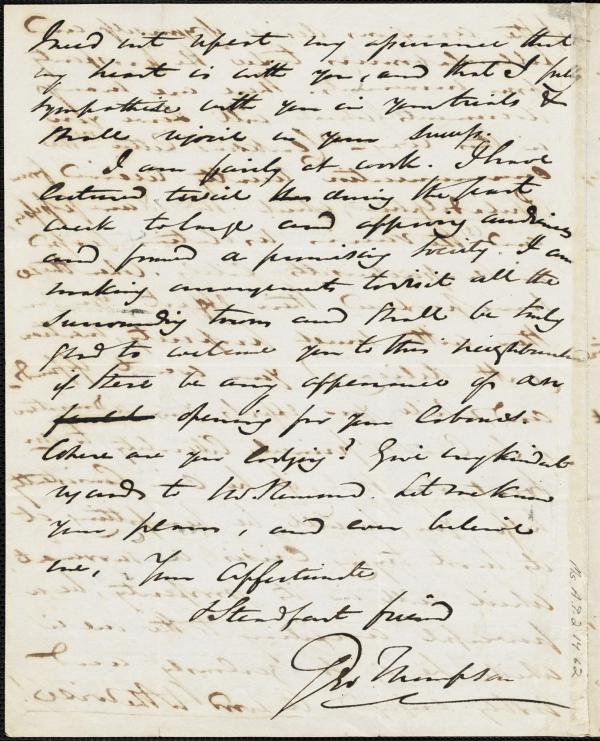 I need not repeat my assurance that
my heart is with you, and that I fully
sympathise with you in your trials &
shall rejoice in your success.
I am fairly at work. I have
lectured twice here during the past
week to large and approving audiences
and found a promising Society. I am
making arrangements to visit all the
surrounding towns and shall be truly
glad to welcome you to this neighbourhood
if there be any appearance of an
opening for your labours.
Where are you lodging? Give my kindest
regards to Mr. Remond. Let me know
your plans, and ever believe
me, Your affectionate
& Steadfast friend
Geo. Thompson
Ms. A.9.2.14.62